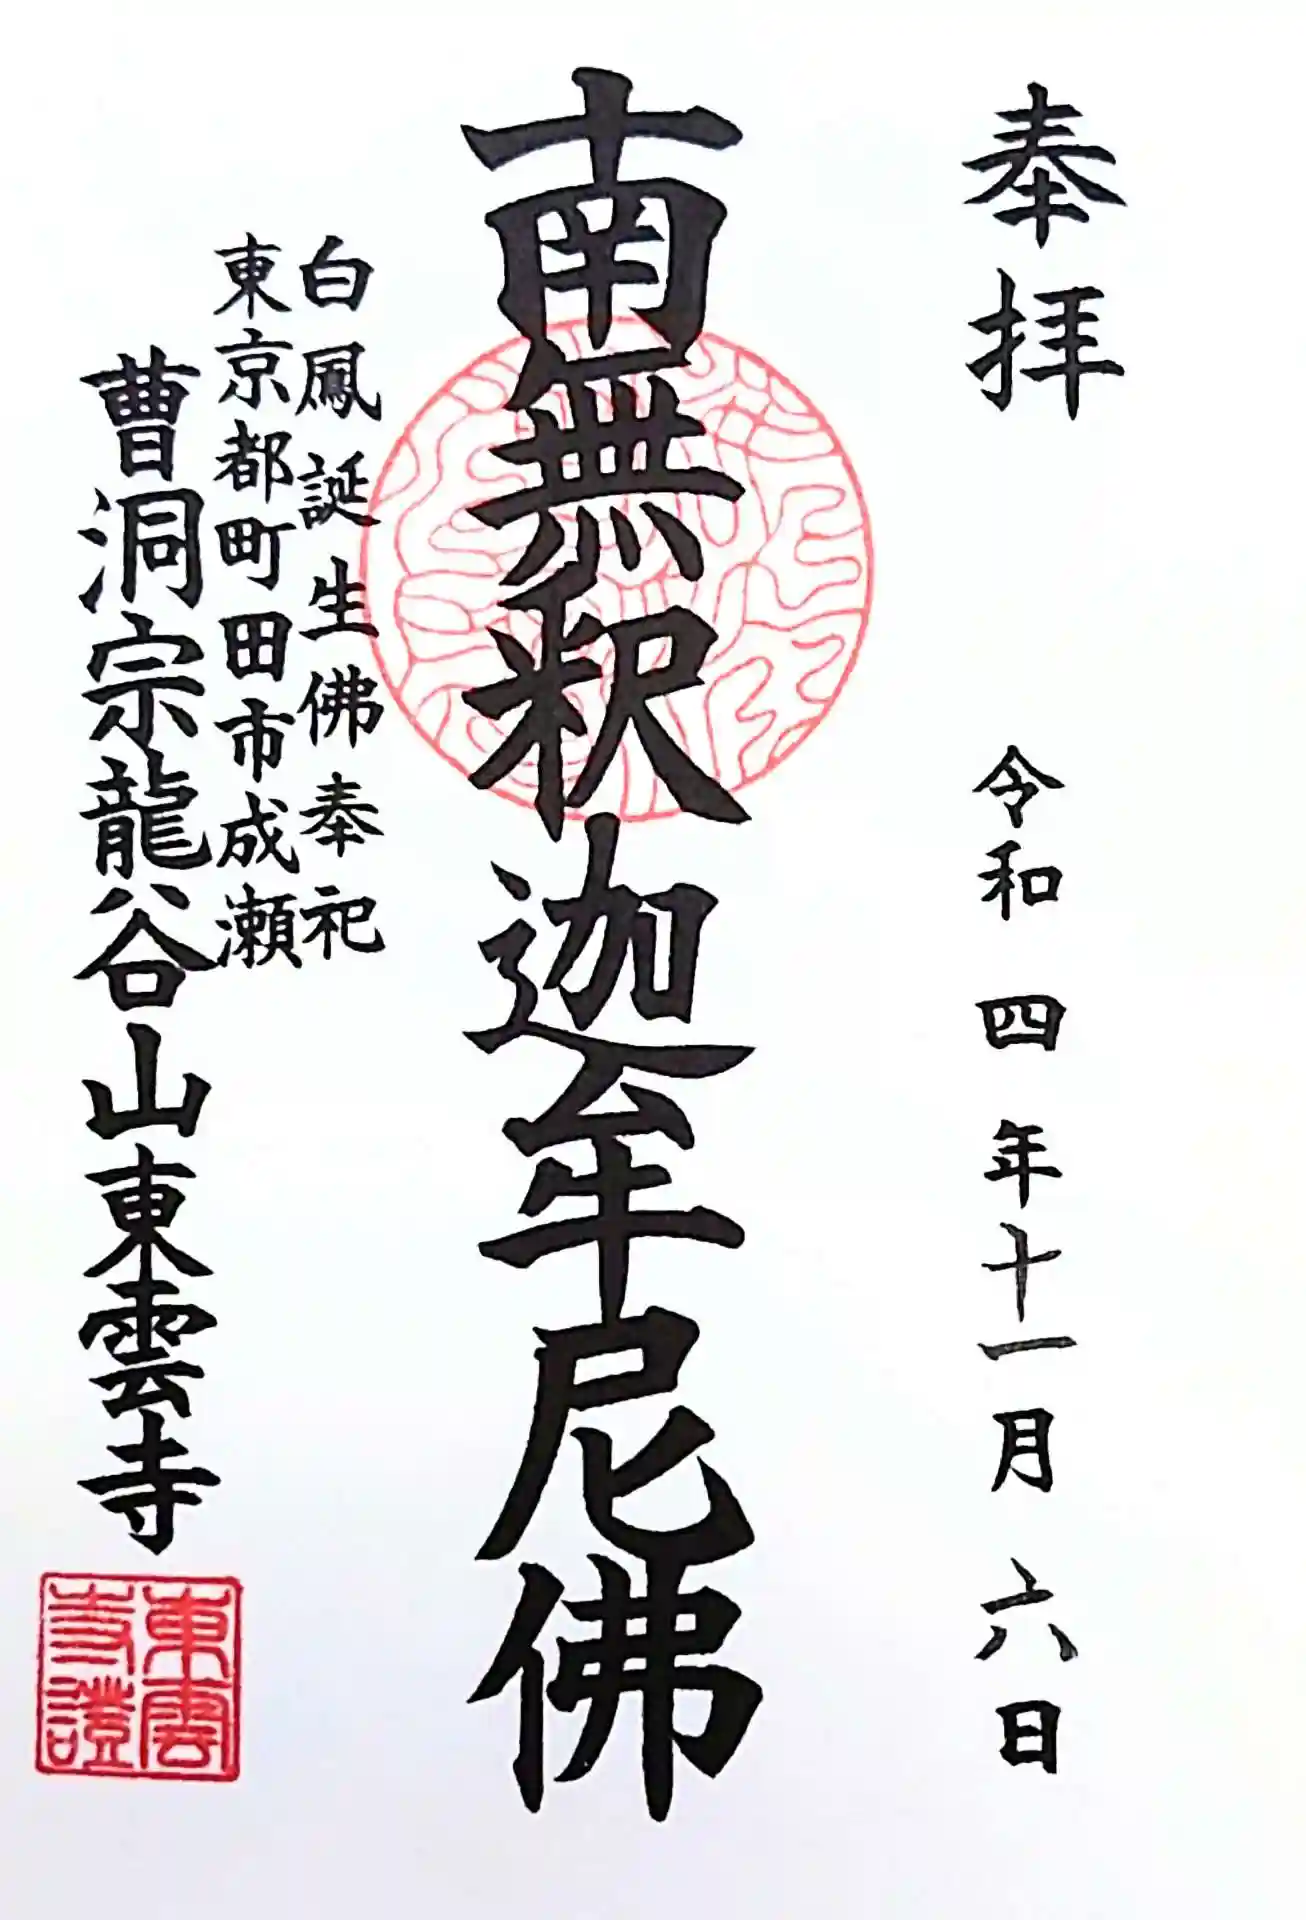 奉拝
令和四年十一月六日
南無釈迦牟尼佛
白鳳誕生佛奉祀
東京都町田市成瀬
曹洞宗龍谷山東雲寺
東雲
寺證